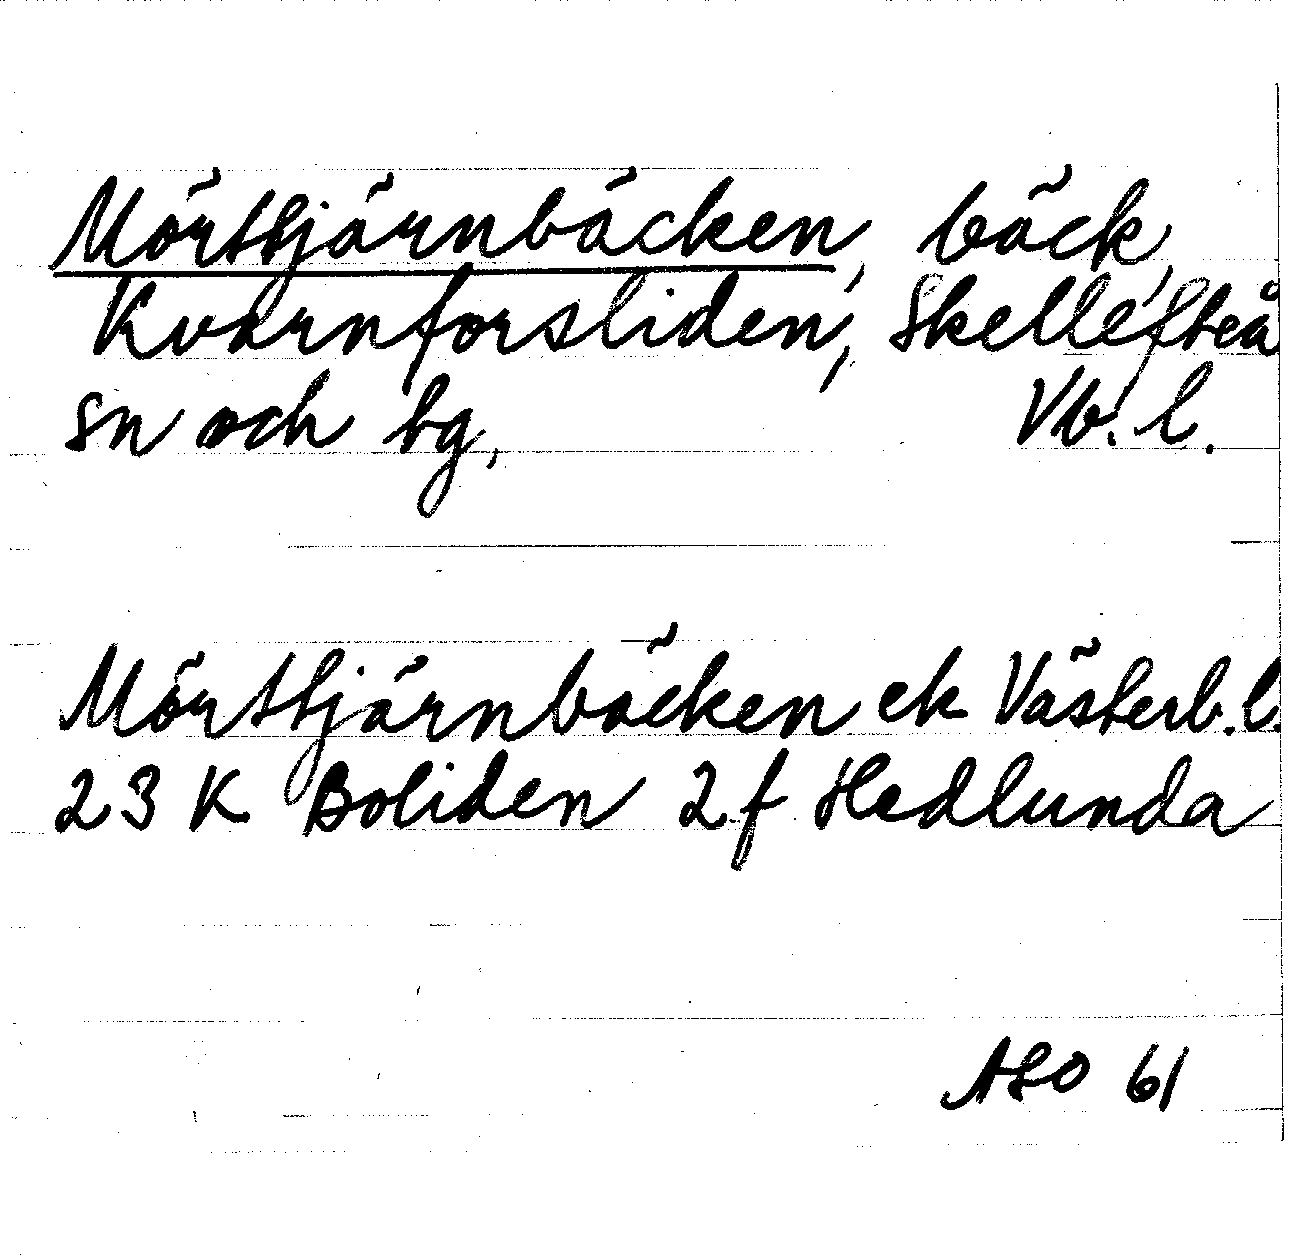 Mörttjärnbäcken, bäck,
Kvarnforsliden, Skellefteå
sn och bg, Vb. l.
Mörttjärnbäcken ek Västerb. l.
23 K Boliden 2 f Hedlunda
ASO 61